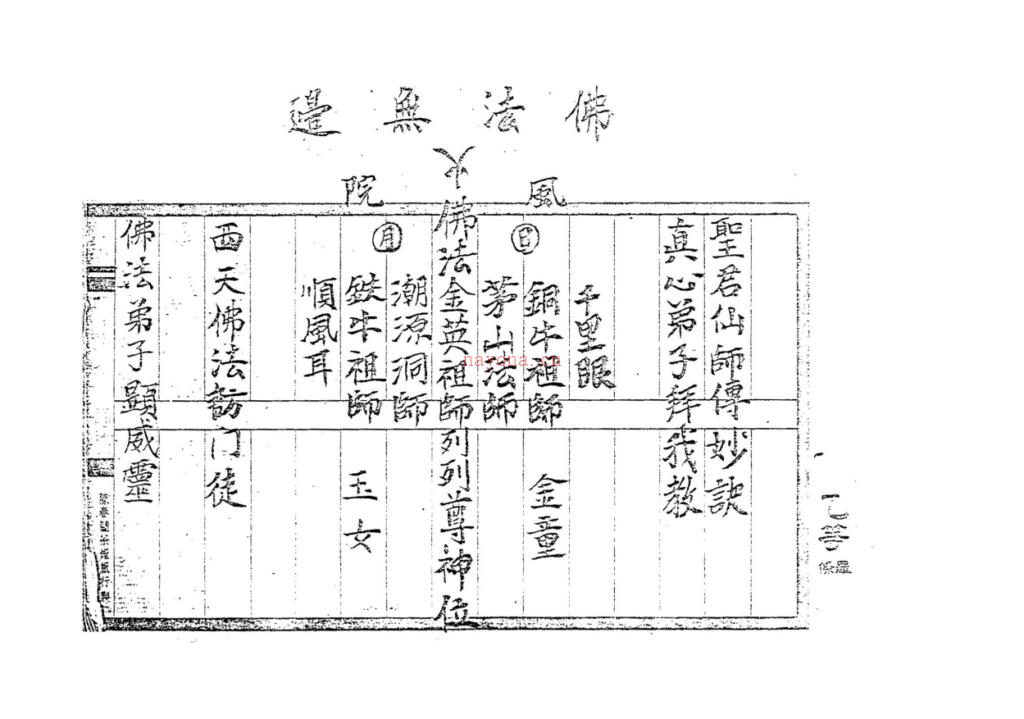 佛法無邊
風院
聖君仙師傳妙訣
真心弟子拜我教
千里眼
銅牛祖師
金童
日
茅山法師
佛法金英祖師列列尊神位
潮源洞師
月
鉄牛祖師
玉女
順風耳
西天佛法訪门徒
佛法弟子顯威靈
hardna.cn